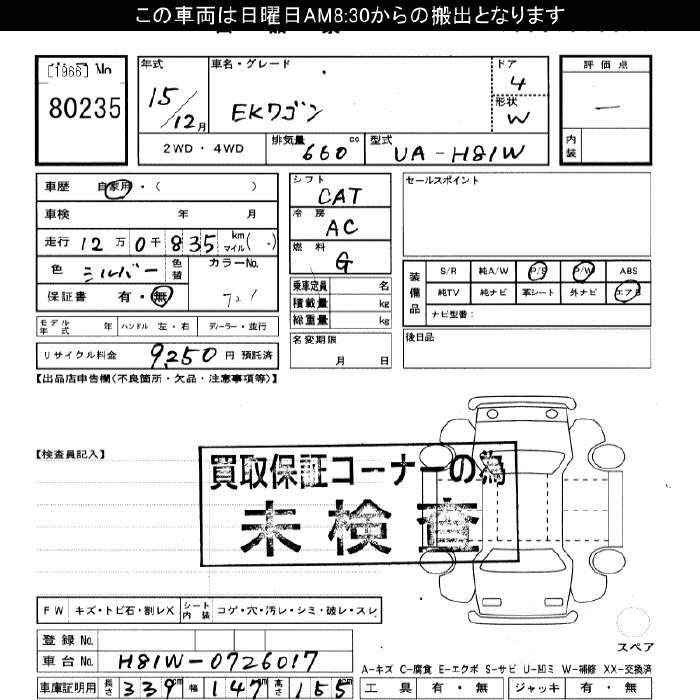 この車両は日曜日AM8:30からの搬出となります
[1966] No
80235
年式 15/12月
車名・グレード EKワゴン
ドア 4
形状 W
評価点 —
内装
2WD・4WD
排気量 660 cc
型式 UA-H81W
車歴 自家用・( )
車検 年 月
走行 12万0千835 km マイル( )
色 シルバー 色替 カラーNo.
保証書 有・無
モデル年式 年 ハンドル 左・右 ディーラー・並行
リサイクル料金 9,250 円 預託済
シフト CAT
冷房 AC
燃料 G
乗車定員 名
積載量 kg
総重量 kg
名変期限 月 日
セールスポイント
装備品
S/R 純A/W P/S P/W ABS
純TV 純ナビ 革シート 外ナビ エアB
ナビ型番:
後日品
【出品店申告欄(不良箇所・欠品・注意事項等)】
【検査員記入】
買取保証コーナーの為
未検査
FW キズ・トビ石・割レX シート内装 コゲ・穴・汚レ・シミ・破レ・スレ
登録No.
車台No. H81W-0726017
車庫証明用 長さ 339cm 幅 147cm 高さ 155cm
スペア
A-キズ C-腐食 E-エクボ S-サビ U-凹ミ W-補修 XX-交換済
工具 有・無 ジャッキ 有・無